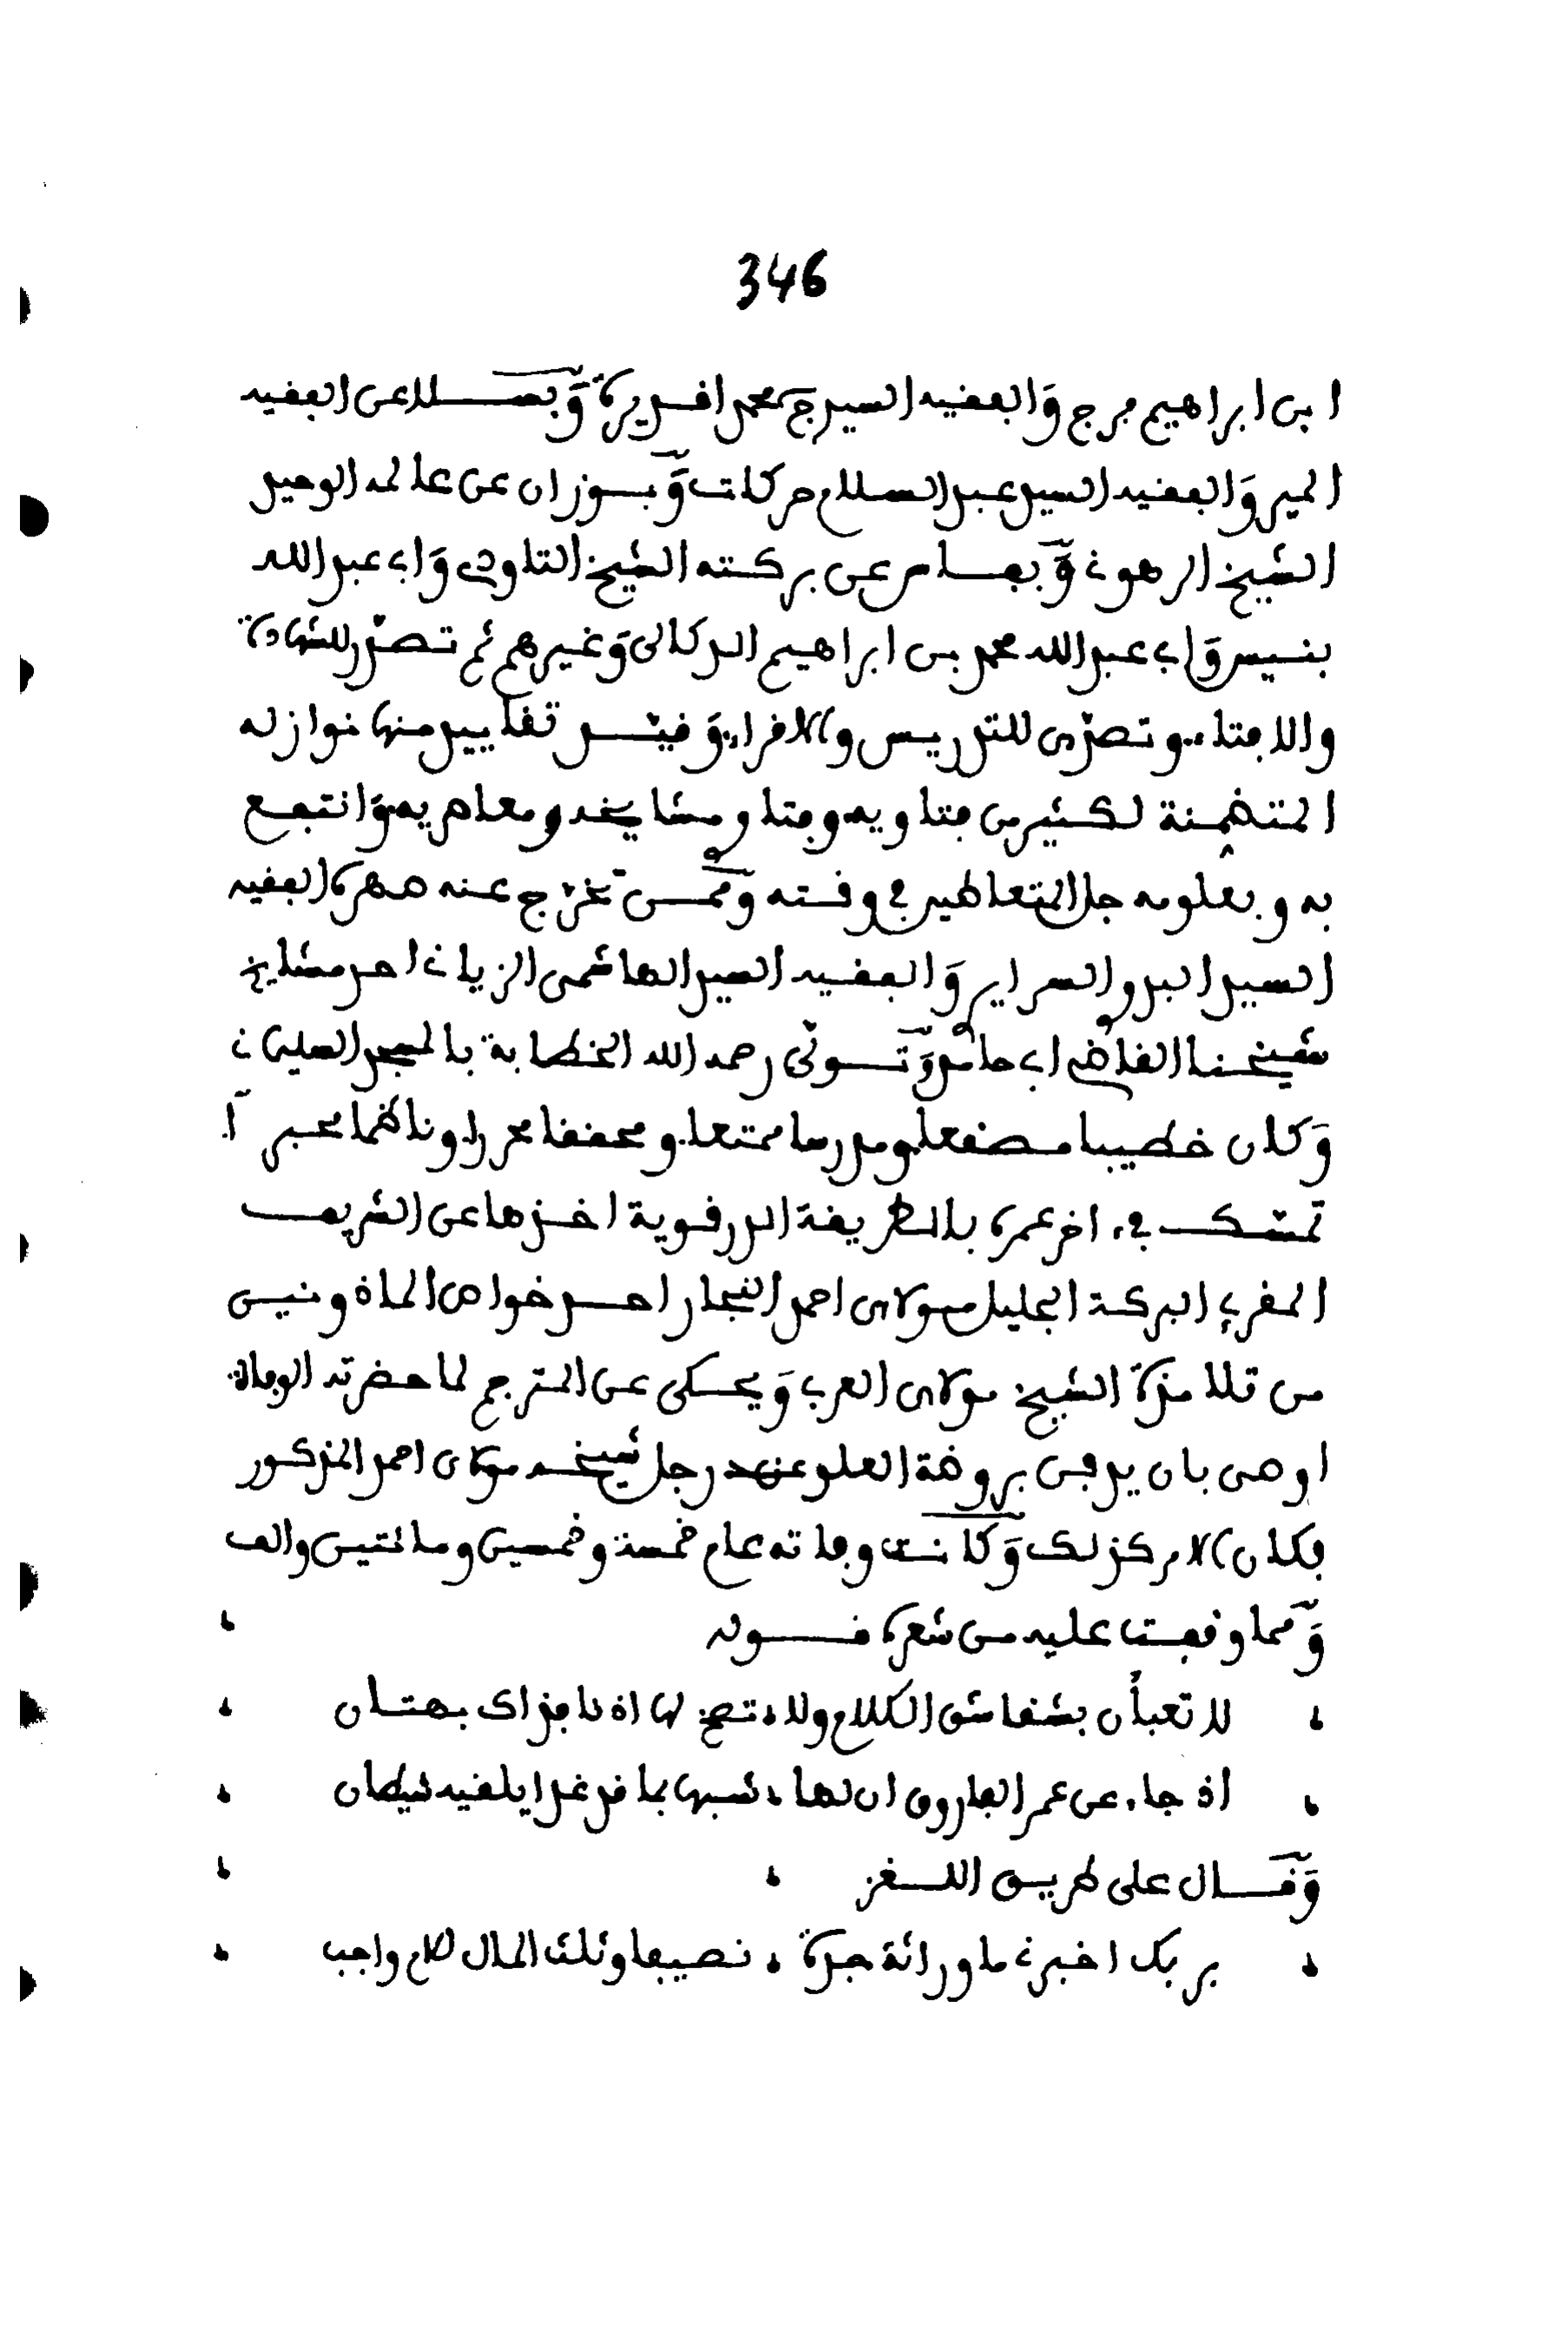 346
ابن ابراهيم مرج والفقيه السيد ج محمد اقديرة وبسلا عن الفقيه
المير والفقيه السيد عبد السلام حركات وبوزان عن عالمه الوحيد
الشيخ الرهوني وبفاس عن بركته الشيخ التاودي وابي عبد الله
بنيس وابي عبد الله محمد بن ابراهيم الدكالي وغيرهم ثم تصدر للشهادة
والافتاء وتصدى للتدريس والاقراء وقيد تقاييد منها نوازله
المتضمنة لكثير من فتاويه وفتاوي مشايخه ومعاصريه وانتفع
به وبعلومه جل المتعاطين في وقته وممن تخرج عنه صهره الفقيه
السيد البدوي السرايري والفقيه السيد الهاشمي الزياني احد مشايخ
شيخنا القاضي ابي حامد وتولى رحمه الله الخطابة بالمسجد السليماني
وكان خطيبا مصقعا ومدرسا ممتعا ومحققا محررا وناظما محبرا
تمسك في ءاخر عمره بالطريقة الدرقوية اخذها عن الشريف
المقرئ البركة الجليل مولاي احمد النجار احد خواص الماذونين
من تلامذة الشيخ مولاي العربي ويحكى عن المترجم لما حضرته الوفاة
اوصى بان يدفن بروضة العلو عند رجل شيخه مولاي احمد المذكور
فكان الامر كذلك وكانت وفاته عام خمسة وخمسين ومائتين والف
ومما وقفت عليه من شعره قوله
لا تعبأن بشقاشق الكلام ولا تصخ لها اذنا فذاك بهتان
اذ جاء عن عمر الفاروق ان لها شبها بما قد غدا يلقيه شيطان
وقال على طريق اللغز
بربك اخبرني ما وراثة جدة نصيبا وثلث المال للام واجب